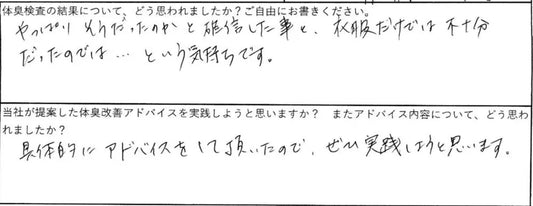 体臭検査の結果について、どう思われましたか？ご自由にお書きください。
やっぱり そうだったのかと確信した事と、衣服だけでは不十分
だったのでは… という気持ちです。
当社が提案した体臭改善アドバイスを実践しようと思いますか？ またアドバイス内容について、どう思わ
れましたか？
具体的に アドバイスをして頂いたので、ぜひ 実践しようと思います。